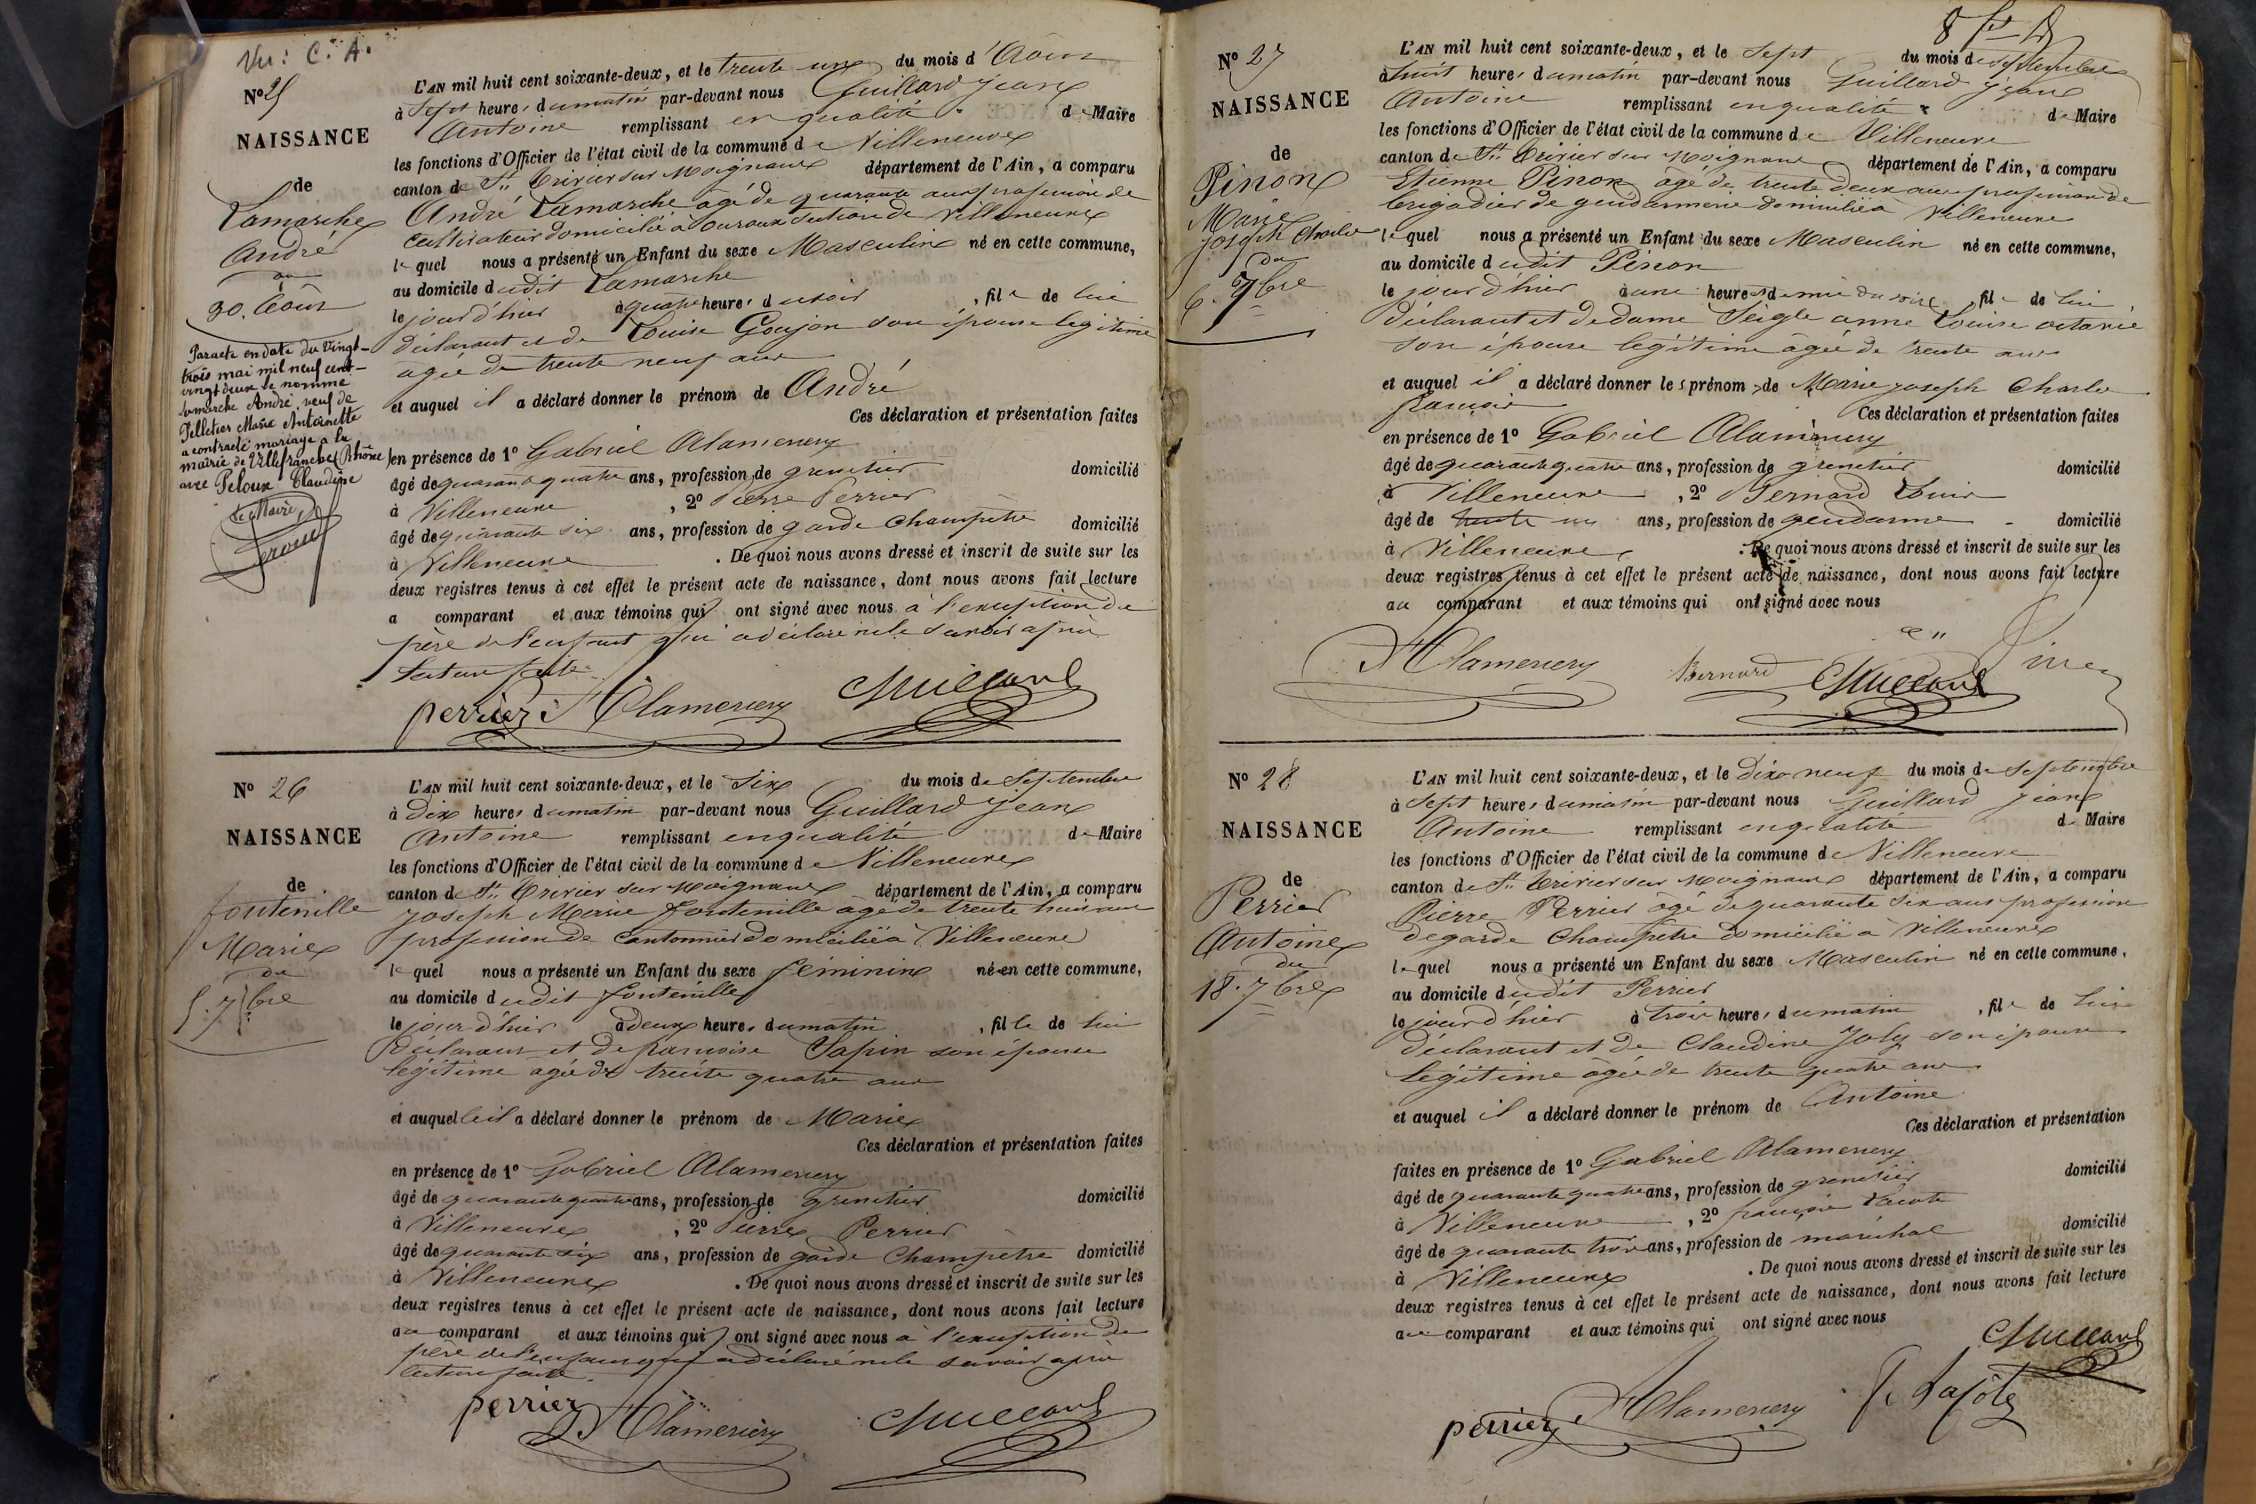 Vu: C. A.
N° 25
NAISSANCE
de
Lamarche
André
du
30. Août
Par acte en date du vingt-
trois mai mil neuf cent-
vingt deux le nommé
Lamarche André, veuf de
Pelletier Marie Antoinette
a contracté mariage à la
mairie de Villefranche (Rhône)
avec Peloux Claudine
Le Maire,
L'AN mil huit cent soixante-deux, et le trente un du mois d'Août
à Sept heures du matin par-devant nous Guillard Jean
Antoine remplissant en qualité de Maire
les fonctions d'Officier de l'état civil de la commune de Villeneuve
canton de St Trivier sur Moignans département de l'Ain, a comparu
André Lamarche âgé de quarante ans profession de
Cultivateur domicilié à ouroux section de Villeneuve
lequel nous a présenté un Enfant du sexe Masculin né en cette commune,
au domicile dudit Lamarche
le jour d'hier à quatre heures du soir, fils de lui
déclarant et de Louise Goujon son épouse légitime
agée de trente neuf ans
et auquel il a déclaré donner le prénom de André
Ces déclaration et présentation faites
en présence de 1° Gabriel Alamercery
âgé de quarante quatre ans, profession de grenetier domicilié
à Villeneuve, 2° Pierre Perrier
âgé de quarante six ans, profession de garde Champêtre domicilié
à Villeneuve. De quoi nous avons dressé et inscrit de suite sur les
deux registres tenus à cet effet le présent acte de naissance, dont nous avons fait lecture
a comparant et aux témoins qui ont signé avec nous à l'exception du
père de l'enfant qui a déclaré ne le savoir après
lecture faite.
perrier Alamercery Guillard
N° 26
NAISSANCE
de
fontenille
Marie
du
5. 7bre
L'AN mil huit cent soixante-deux, et le Six du mois de Septembre
à Dix heures du matin par-devant nous Guillard Jean
Antoine remplissant en qualité de Maire
les fonctions d'Officier de l'état civil de la commune de Villeneuve
canton de St Trivier sur Moignans département de l'Ain, a comparu
Joseph Marie fontenille âgé de trente huit ans
profession de Cantonnier domicilié à Villeneuve
lequel nous a présenté un Enfant du sexe féminin né en cette commune,
au domicile dudit fontenille
le jour d'hier à deux heures du matin, fille de lui
déclarant et de françoise Sapin son épouse
légitime agée de trente quatre ans
et auquel le il a déclaré donner le prénom de Marie
Ces déclaration et présentation faites
en présence de 1° Gabriel Alamercery
âgé de quarante quatre ans, profession de grenetier domicilié
à Villeneuve, 2° Pierre Perrier
âgé de quarante six ans, profession de garde Champêtre domicilié
à Villeneuve. De quoi nous avons dressé et inscrit de suite sur les
deux registres tenus à cet effet le présent acte de naissance, dont nous avons fait lecture
au comparant et aux témoins qui ont signé avec nous à l'exception du
père de l'enfant qui a déclaré ne le savoir après
lecture faite.
perrier Alamercery Guillard
N° 27
NAISSANCE
de
Pinon
Marie
Joseph Charles
du
6. 7bre
L'AN mil huit cent soixante-deux, et le Sept du mois de Septembre
à huit heures du matin par-devant nous Guillard Jean
Antoine remplissant en qualité de Maire
les fonctions d'Officier de l'état civil de la commune de Villeneuve
canton de St Trivier sur Moignans département de l'Ain, a comparu
Etienne Pinon âgé de trente deux ans profession de
brigadier de gendarmerie domicilié à Villeneuve
lequel nous a présenté un Enfant du sexe Masculin né en cette commune,
au domicile dudit Pinon
le jour d'hier à une heure et demie du soir, fils de lui
déclarant et de dame Seigle anne Louise octavie
son épouse légitime âgée de trente ans
et auquel il a déclaré donner les prénoms de Marie Joseph Charles
françois
Ces déclaration et présentation faites
en présence de 1° Gabriel Alamercery
âgé de quarante quatre ans, profession de grenetier domicilié
à Villeneuve, 2° Bernard Louis
âgé de trente un ans, profession de gendarme domicilié
à Villeneuve. De quoi nous avons dressé et inscrit de suite sur les
deux registres tenus à cet effet le présent acte de naissance, dont nous avons fait lecture
au comparant et aux témoins qui ont signé avec nous
Alamercery Bernard Guillard Pinon
N° 28
NAISSANCE
de
Perrier
Antoine
du
18. 7bre
L'AN mil huit cent soixante-deux, et le Dix neuf du mois de Septembre
à Sept heures du matin par-devant nous Guillard Jean
Antoine remplissant en qualité de Maire
les fonctions d'Officier de l'état civil de la commune de Villeneuve
canton de St Trivier sur Moignans département de l'Ain, a comparu
Pierre Perrier âgé de quarante Six ans profession
de garde Champêtre domicilié à Villeneuve
lequel nous a présenté un Enfant du sexe Masculin né en cette commune,
au domicile dudit Perrier
le jour d'hier à trois heures du matin, fils de lui
déclarant et de Claudine Joly son épouse
légitime âgée de trente quatre ans
et auquel il a déclaré donner le prénom de Antoine
Ces déclaration et présentation
faites en présence de 1° Gabriel Alamercery
âgé de quarante quatre ans, profession de grenetier domicilié
à Villeneuve, 2° françois
âgé de quarante trois ans, profession de maréchal domicilié
à Villeneuve. De quoi nous avons dressé et inscrit de suite sur les
deux registres tenus à cet effet le présent acte de naissance, dont nous avons fait lecture
au comparant et aux témoins qui ont signé avec nous
Guillard
perrier Alamercery